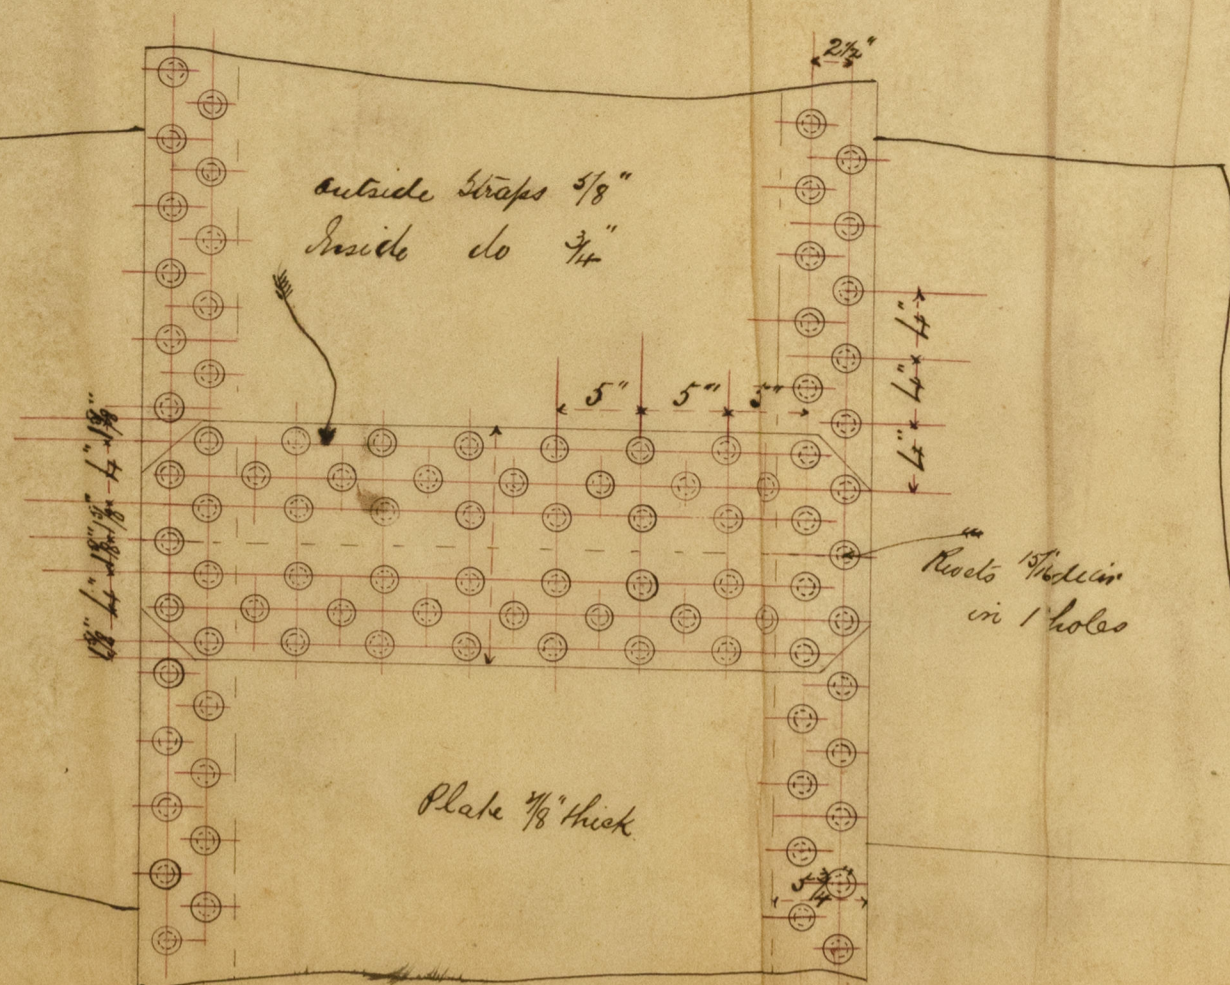 2½"
outside Straps 5/8"
Inside do ¾"
5" 5" 5"
4" 4" 4"
Rivets 15/16 diar
in 1" holes
Plate 7/8" thick
5¾"